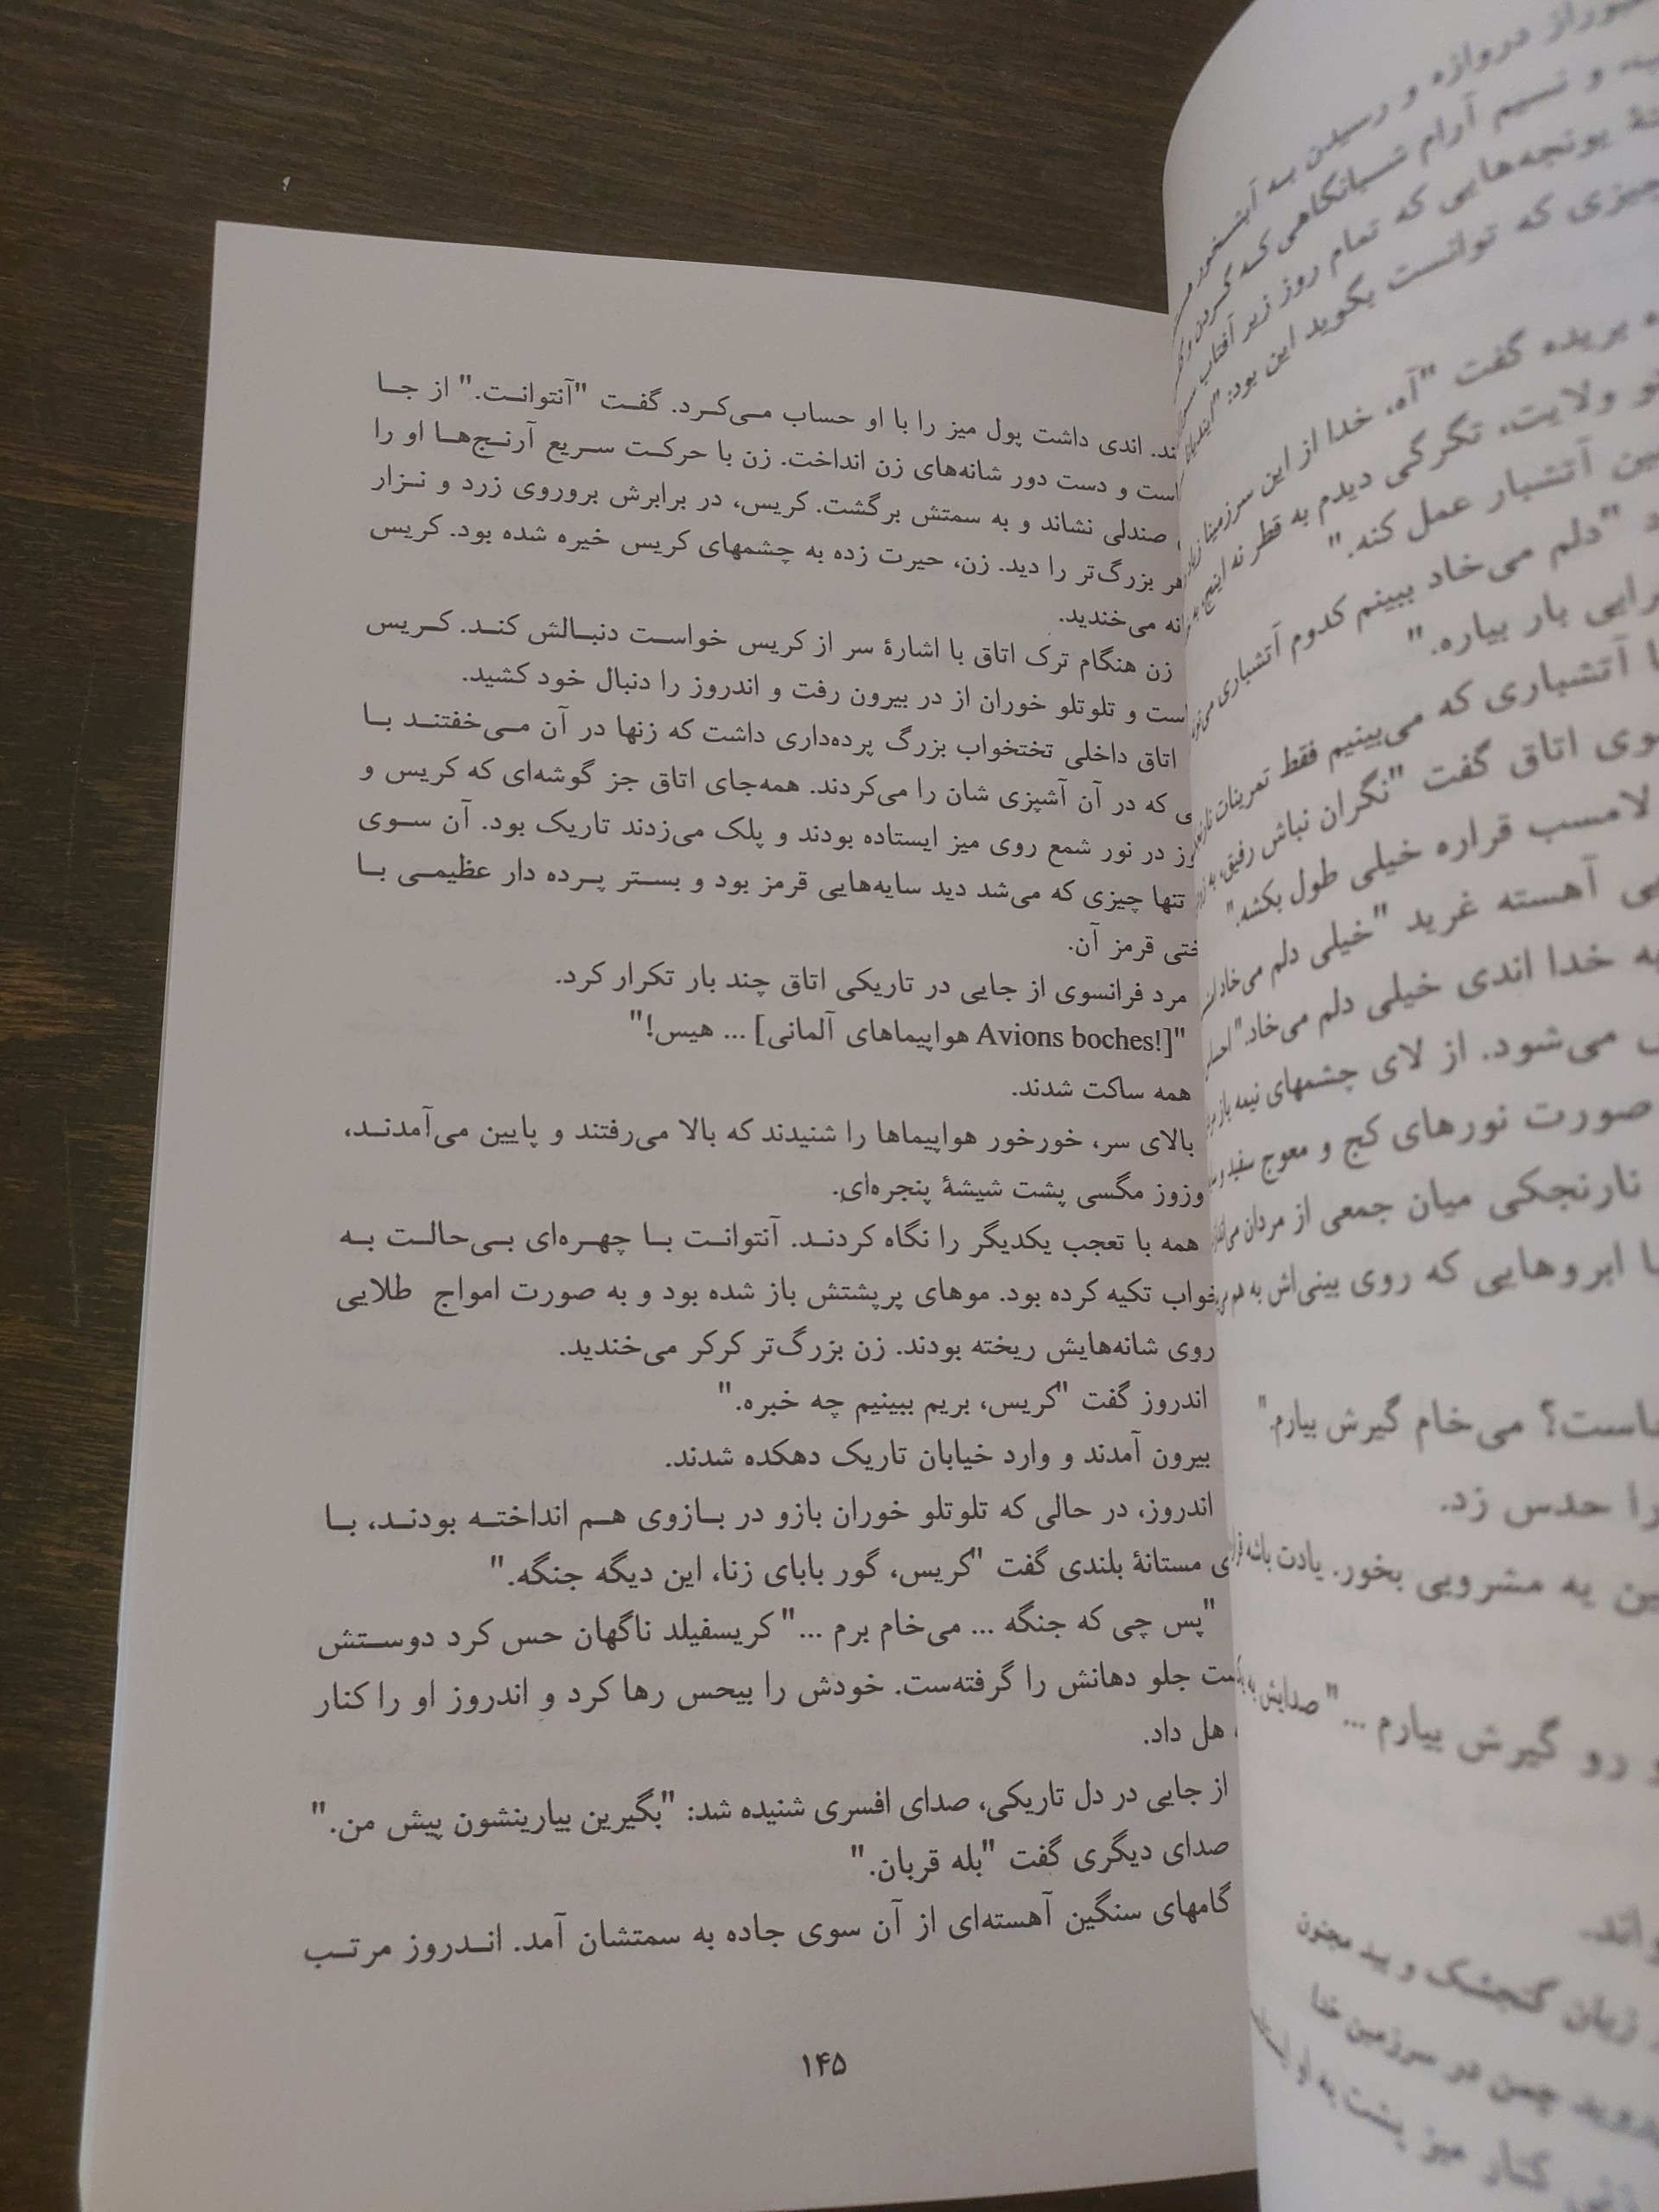 اندی داشت پول میز را با او حساب می‌کرد. گفت "آنتوانت." از جا
و دست دور شانه‌های زن انداخت. زن با حرکت سریع آرنج‌ها او را
صندلی نشاند و به سمتش برگشت. کریس، در برابرش بروروی زرد و نزار
بزرگ‌تر را دید. زن، حیرت زده به چشمهای کریس خیره شده بود. کریس
می‌خندید.
زن هنگام ترک اتاق با اشارهٔ سر از کریس خواست دنبالش کند. کریس
و تلوتلو خوران از در بیرون رفت و اندروز را دنبال خود کشید.
اتاق داخلی تختخواب بزرگ پرده‌داری داشت که زنها در آن می‌خفتند با
که در آن آشپزی شان را می‌کردند. همه‌جای اتاق جز گوشه‌ای که کریس و
در نور شمع روی میز ایستاده بودند و پلک می‌زدند تاریک بود. آن سوی
تنها چیزی که می‌شد دید سایه‌هایی قرمز بود و بستر پرده دار عظیمی با
قرمز آن.
مرد فرانسوی از جایی در تاریکی اتاق چند بار تکرار کرد.
"[!Avions boches هواپیماهای آلمانی] ... هیس!"
همه ساکت شدند.
بالای سر، خورخور هواپیماها را شنیدند که بالا می‌رفتند و پایین می‌آمدند،
وزوز مگسی پشت شیشهٔ پنجره‌ای.
همه با تعجب یکدیگر را نگاه کردند. آنتوانت با چهره‌ای بی‌حالت به
تکیه کرده بود. موهای پرپشتش باز شده بود و به صورت امواج طلایی
روی شانه‌هایش ریخته بودند. زن بزرگ‌تر کرکر می‌خندید.
اندروز گفت "کریس، بریم ببینیم چه خبره."
بیرون آمدند و وارد خیابان تاریک دهکده شدند.
اندروز، در حالی که تلوتلو خوران بازو در بازوی هم انداخته بودند، با
مستانهٔ بلندی گفت "کریس، گور بابای زنا، این دیگه جنگه."
"پس چی که جنگه ... می‌خام برم ..." کریسفیلد ناگهان حس کرد دوستش
جلو دهانش را گرفته‌ست. خودش را بیحس رها کرد و اندروز او را کنار
هل داد.
از جایی در دل تاریکی، صدای افسری شنیده شد: "بگیرین بیارینشون پیش من."
صدای دیگری گفت "بله قربان."
گامهای سنگین آهسته‌ای از آن سوی جاده به سمتشان آمد. اندروز مرتب
۱۴۵
دروازه و رسیدن به آبشخور
و نسیم آرام شبانگاهی که گردن و
یونجه‌هایی که تمام روز زیر آفتاب
چیزی که توانست بگوید این بود:
بریده گفت "آه، خدا از این سرزمینا
ولایت، تگرگی دیدم به قطر نه اینچ،
آتشبار عمل کنه."
"دلم می‌خاد ببینم کدوم آتشباری
بار بیاره."
آتشباری که می‌بینیم فقط تمرینات
اتاق گفت "نگران نباش رفیق،
لامسب قراره خیلی طول بکشه."
آهسته غرید "خیلی دلم می‌خاد
خدا اندی خیلی دلم می‌خاد."
می‌شود. از لای چشمهای نیمه باز
صورت نورهای کج و معوج سفید
نارنجکی میان جمعی از مردان
ابروهایی که روی بینی‌اش به هم
می‌خام گیرش بیارم."
را حدس زد.
یه مشروبی بخور. یادت باشه
رو گیرش بیارم ..." صدایش
زبان گنجشک و بید مجنون
چمن در سرزمین خدا
کنار میز پشت به او